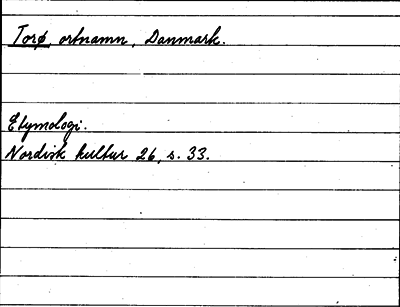 Torø ortnamn, Danmark.
Etymologi.
Nordisk kultur 26, s. 33.